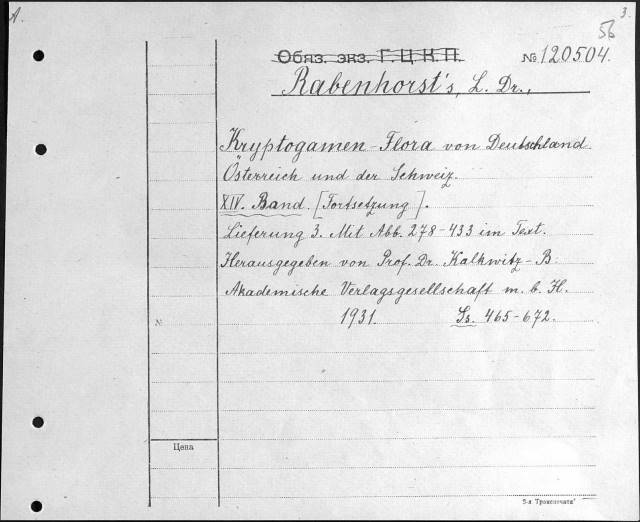 А.
3.
56
Обяз. экз. Г.Ц.К.П.
№ 120504.
Rabenhorst's, L. Dr.,
Kryptogamen-Flora von Deutschland
Österreich und der Schweiz.
XIV. Band. [Fortsetzung].
Lieferung 3. Mit Abb. 278-433 im Text.
Herausgegeben von Prof. Dr. Kalkwitz-B.
Akademische Verlagsgesellschaft m. b. H.
№
1931. Ss. 465-672.
Цена
5-я Транспечати"